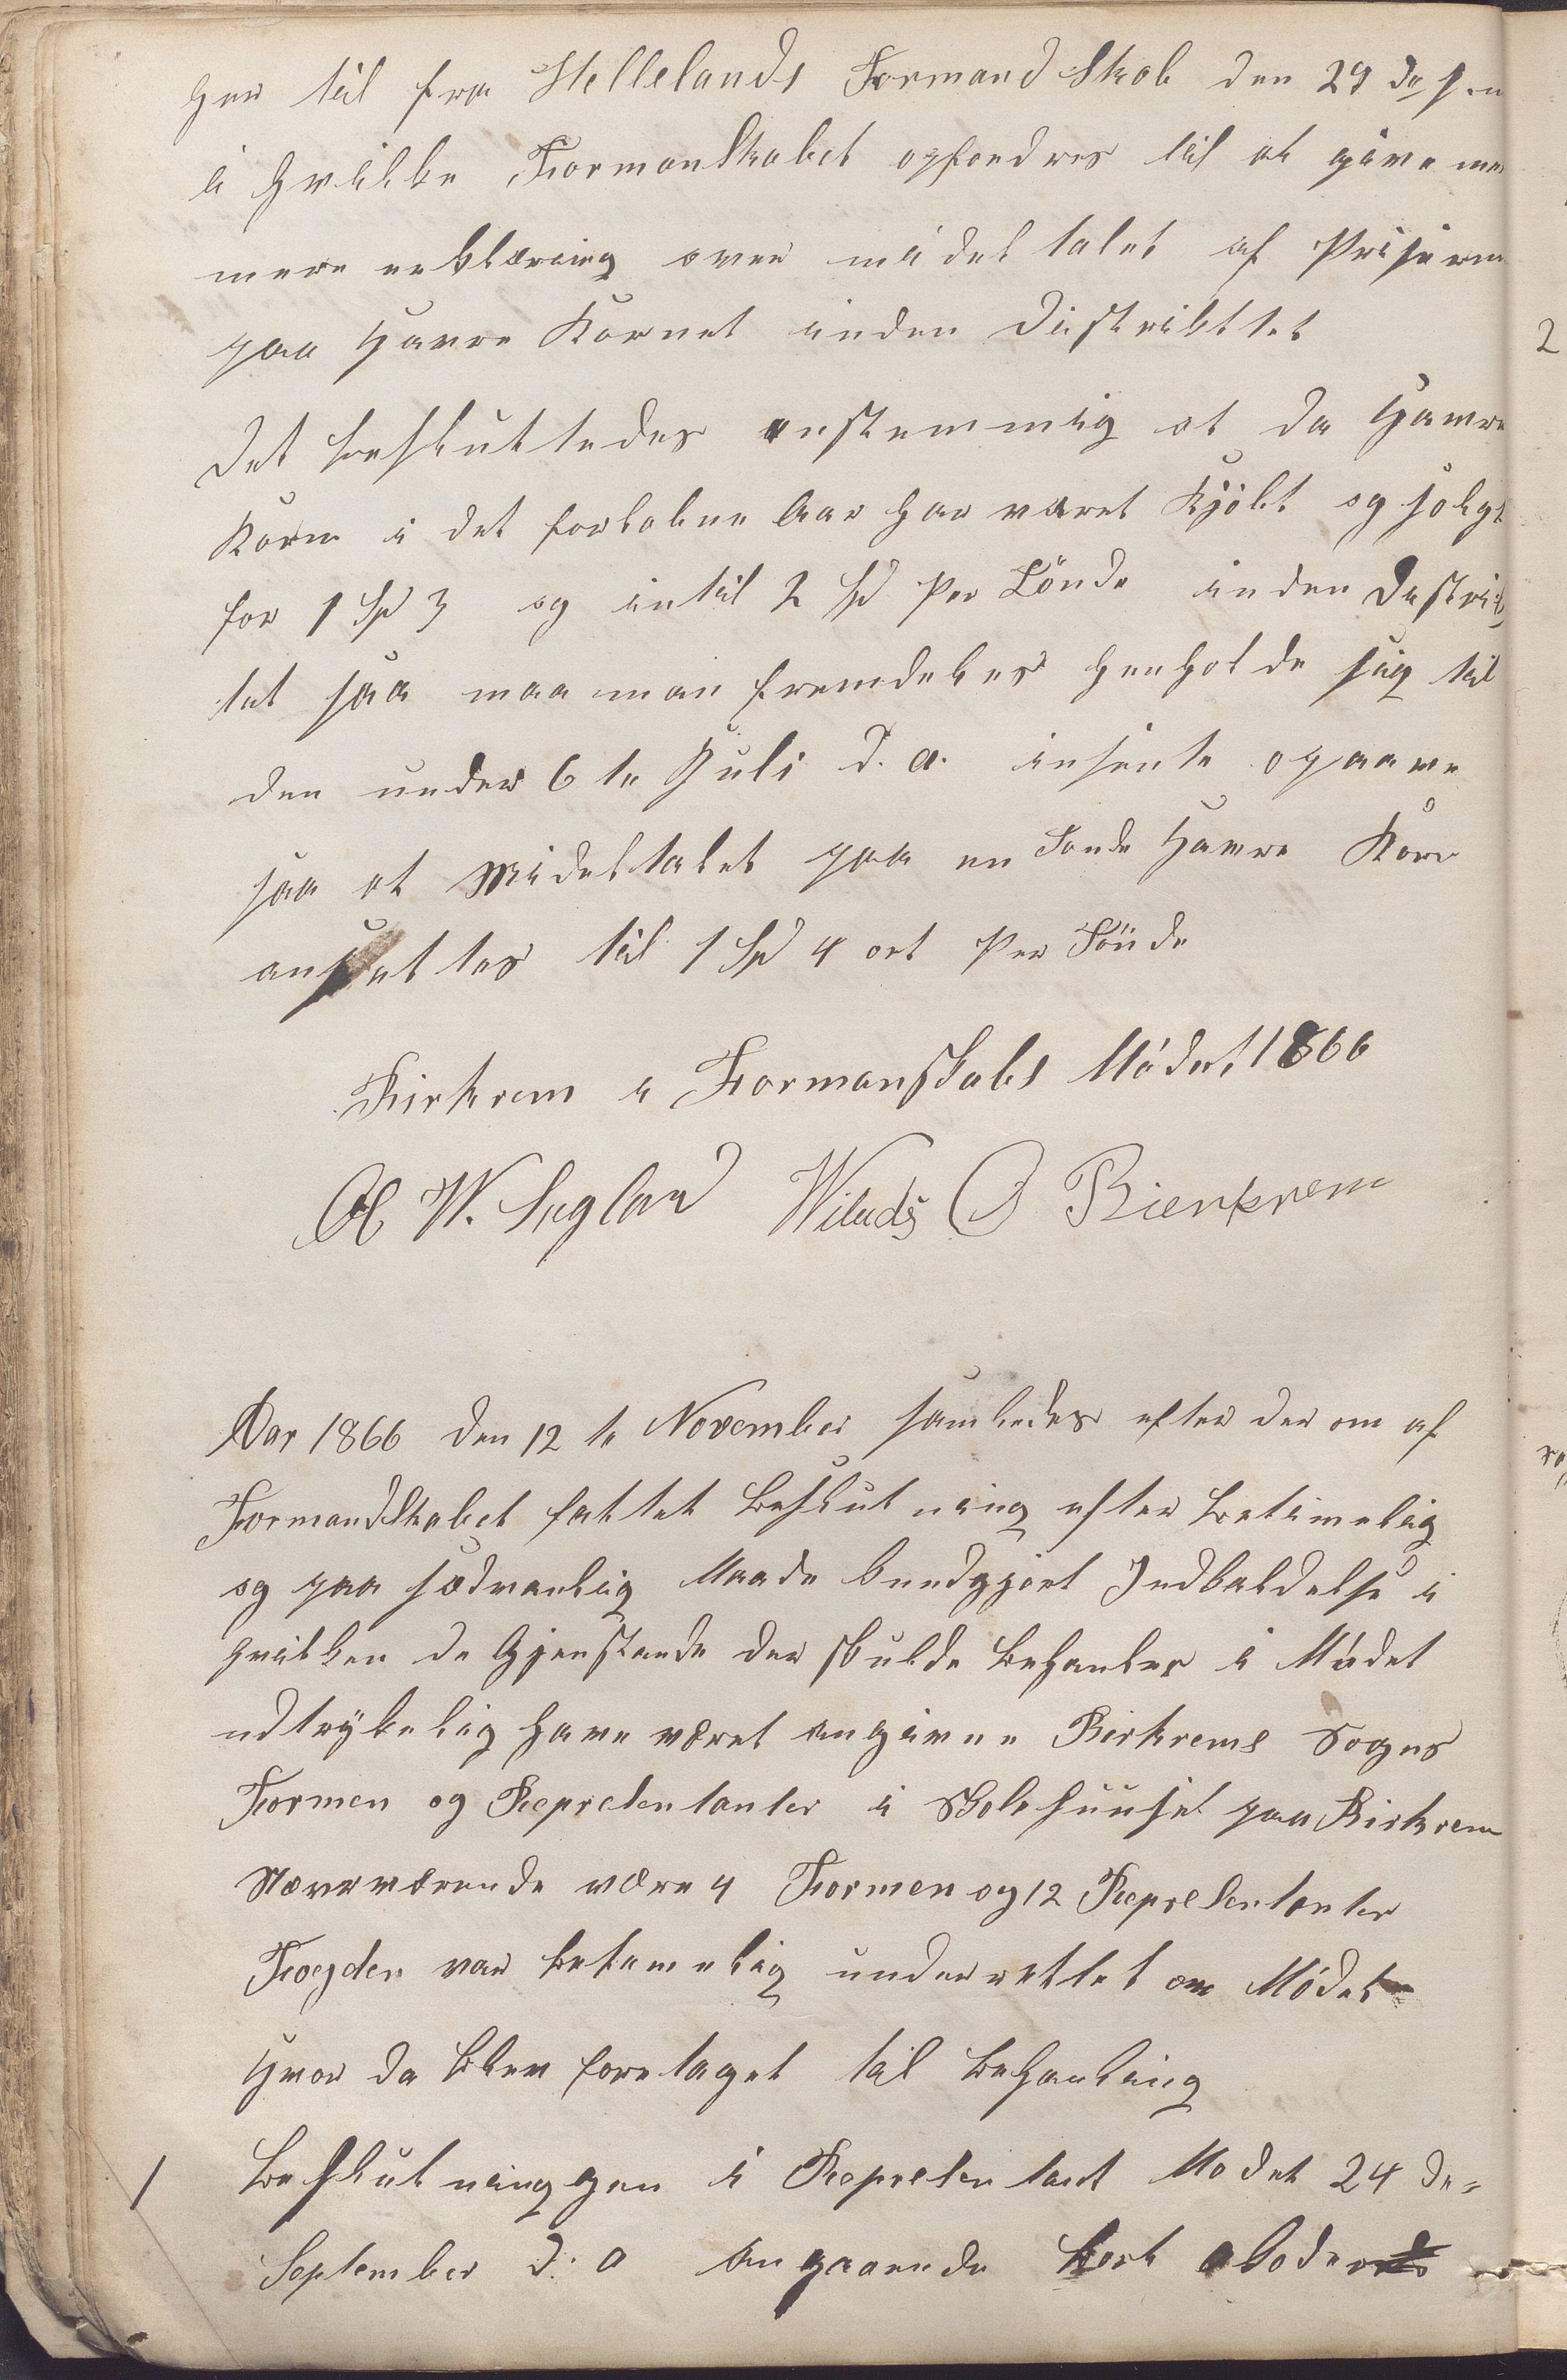 her til fra Hellelands FormandSkab den 29 de s. m
i hvilke FormanSkabet opfordres til at give me
mere erklæring over midel talet af Priserne
paa Havre Kornet inden Distrikttet
Det besluttedes enstemmig at da Havre
Korn i det forløbne Aar har været Kjöbt og solgt
for 1 Spd 3 og intil 2 Spd Per Tönde inden Destrik
tet saa maa man fremdeles henholde sig til
den under 6 te Juli d. a. insente opgave
saa at Mideltalet paa en Tønde Havre Korn
ansættes til 1 Spd 4 ort Per Tönde
Birkrem i Formanskabs Mödet 1866
Ol W. Seglend Wilads O Bierkrem
Aar 1866 den 12 te November samledes efter der om af
FormandSkabet fattet beslutning efter betimelig
og paa sædvanlig Maade bundgjort Indkaldelse i
hvilken de Gjenstande der skulde behanles i Mödet
udtrykelig have været angivne Birkrems Sogns
Formen og RepreSentanter i Skolehuuset paa Birkrem
Nærværende være 4 Formen og 12 RepreSentanter
Fogden var betimelig underrettet om Mödet
hvor da blev foretaget til behanling
1 Beslutninggen i RepreSentant Mødet 24 de
September d. a angaaende
2